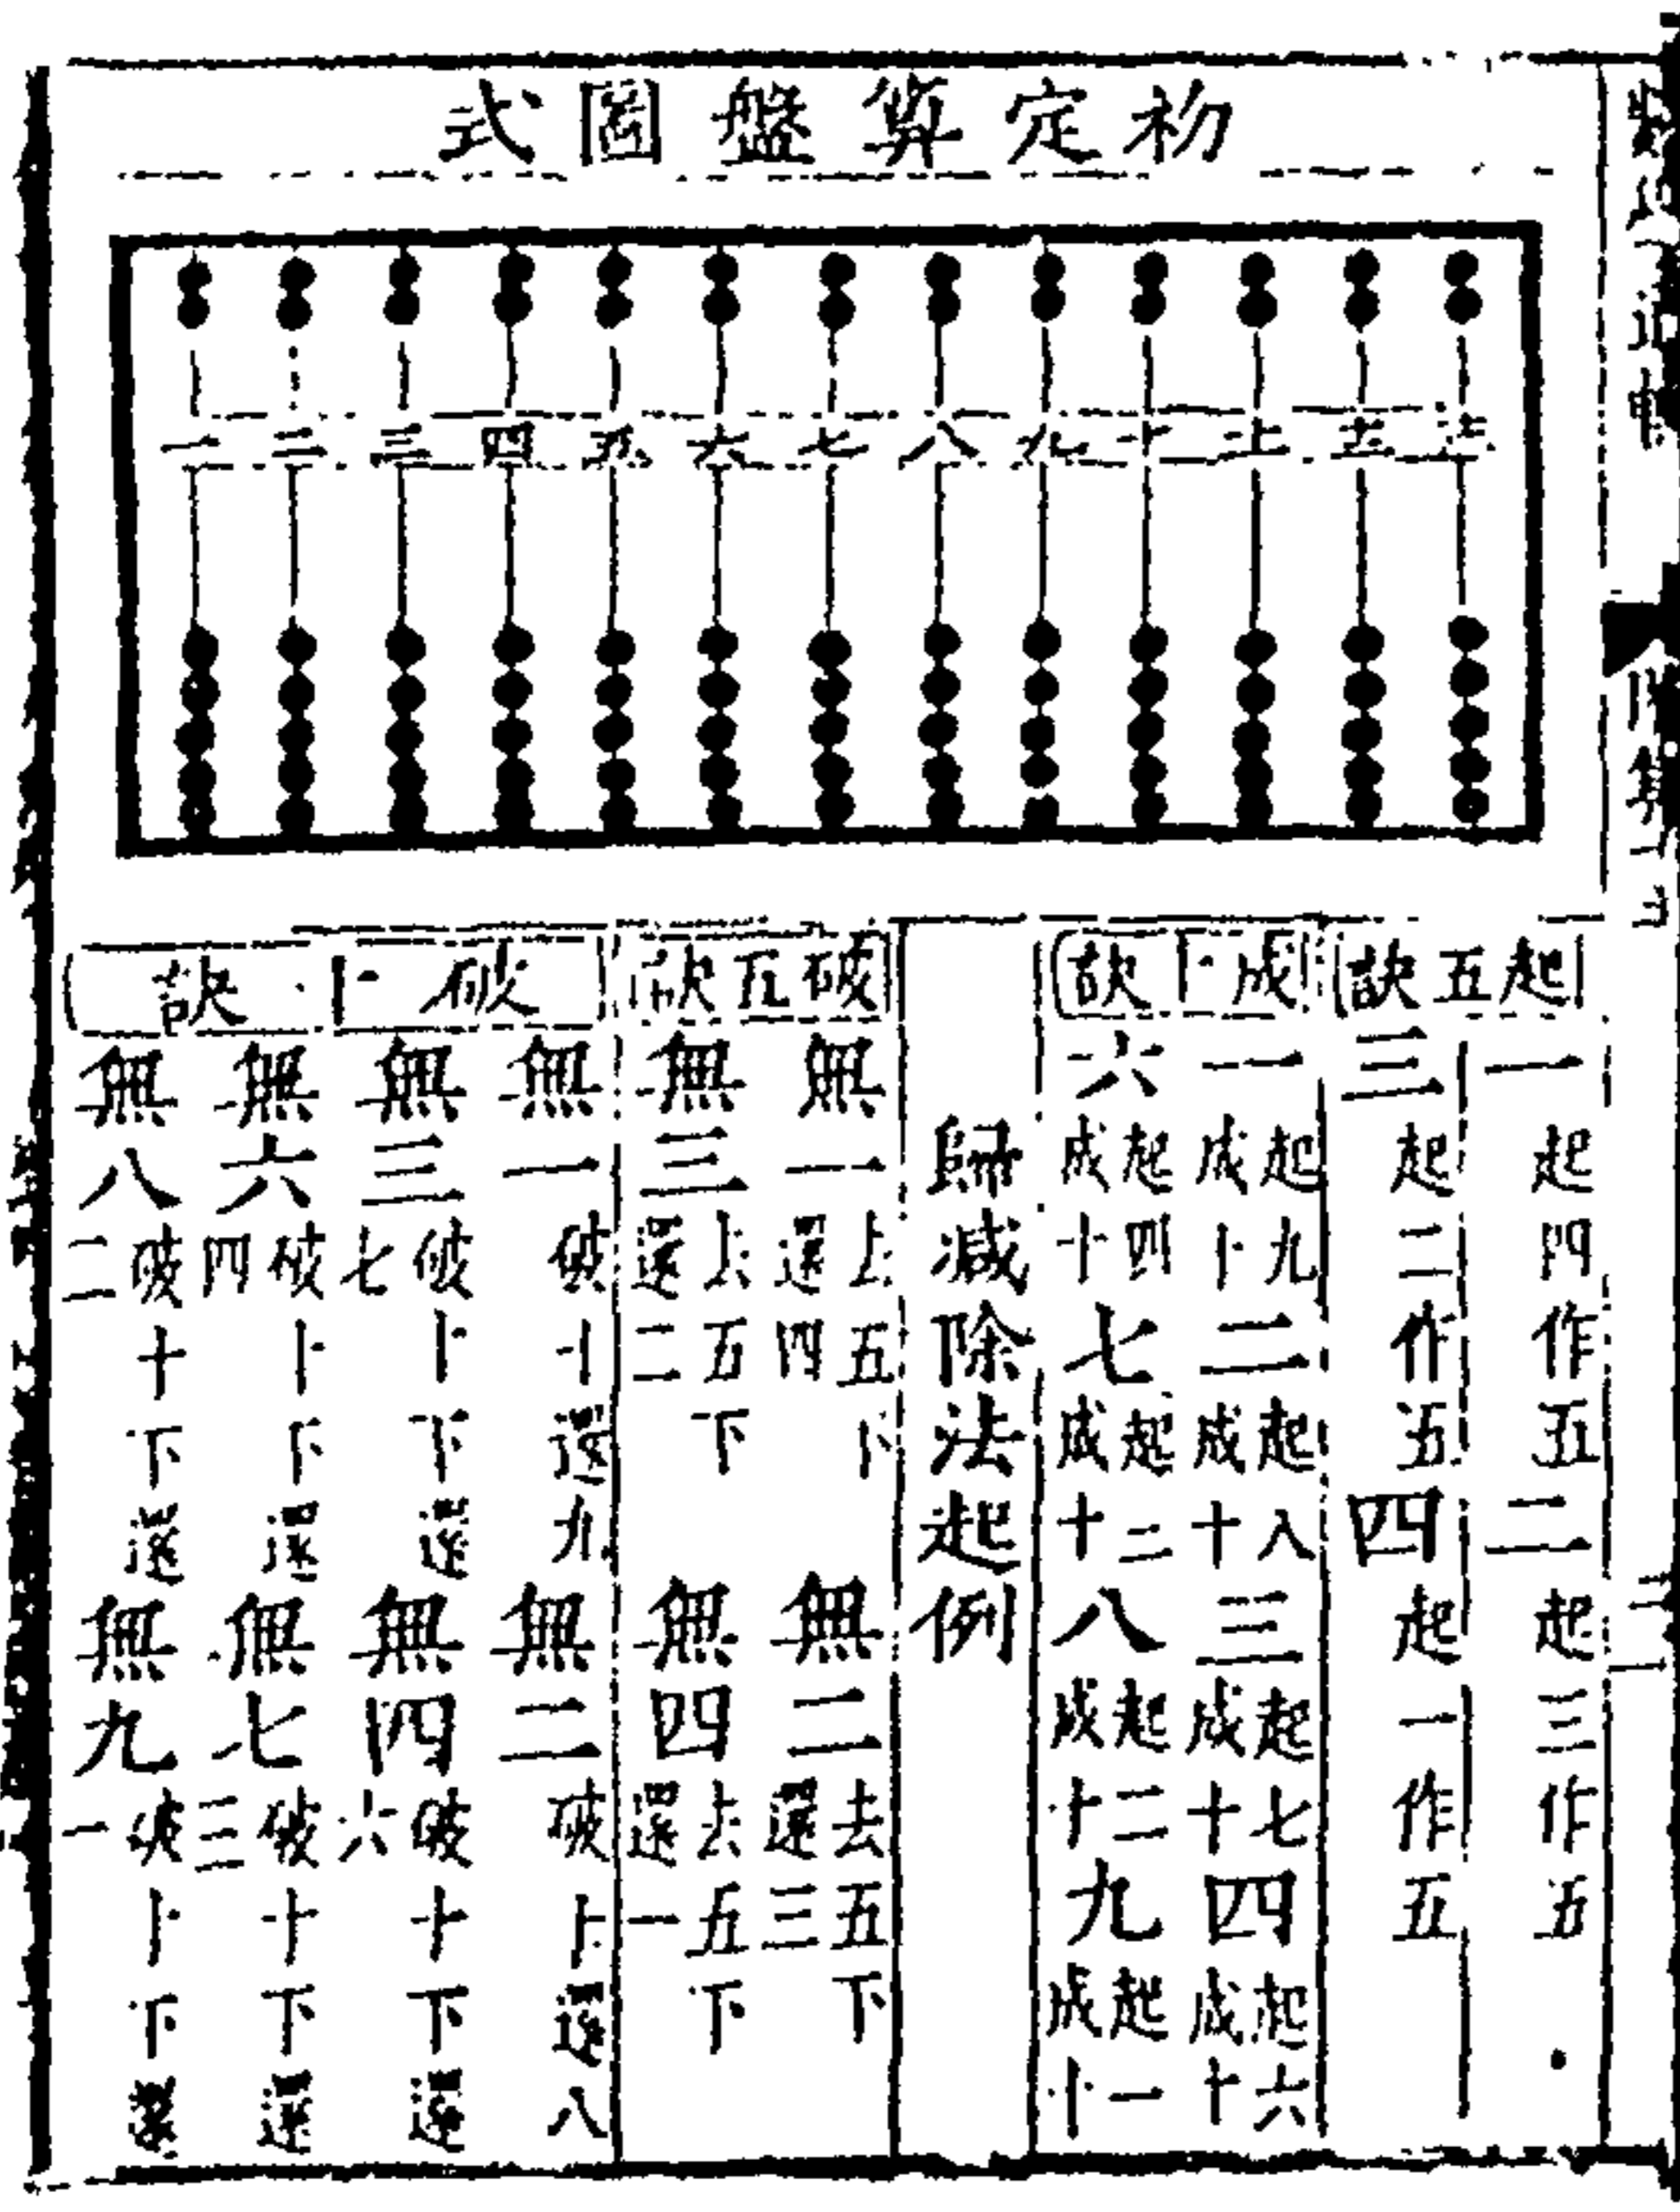 初定算盤圖式
一二三四五六七八九十
起五訣
一起四作五二起三作五
三起二作五四起一作五
成十訣
一起九成十二起八成十三起七成十四起六成十
六起四成十七起三成十八起二成十九起一成十
歸減除法起例
破五訣
無一上五下還四無二去五下還三
無三去五下還二無四去五下還一
破十訣
無一破十還九無二破十還八
無三破十下還七無四破十下還六
無六破十下還四無七破十下還三
無八破十下還二無九破十下還一